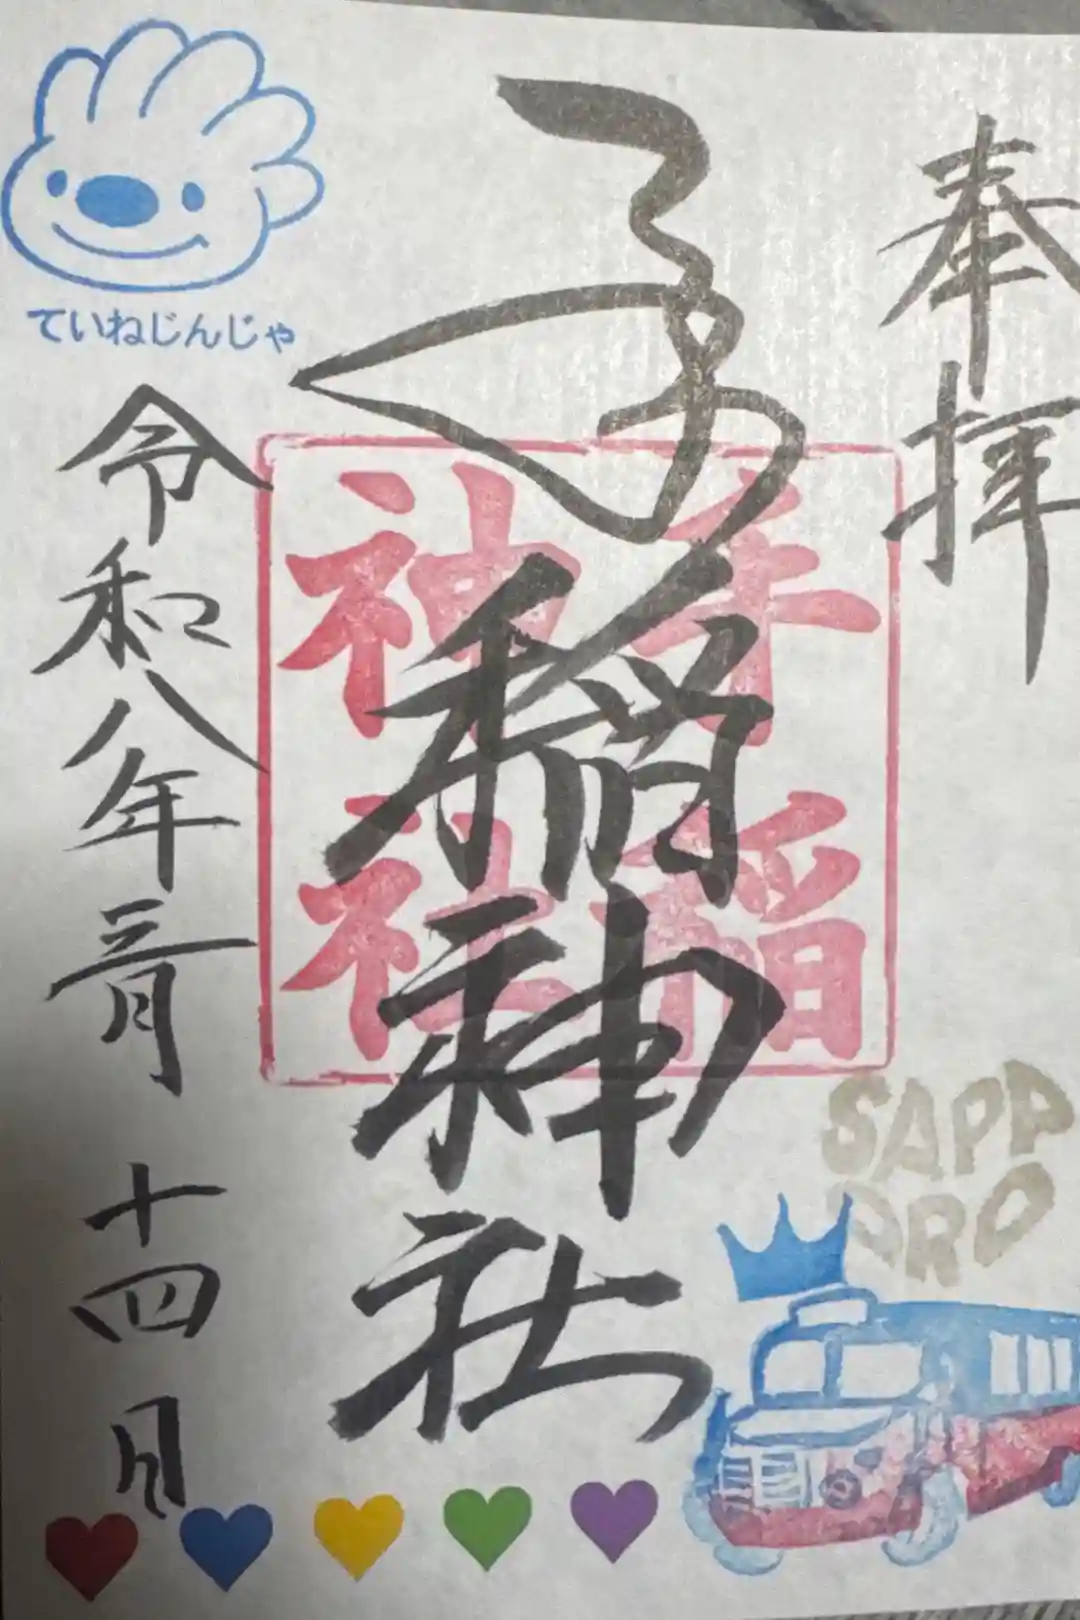 奉拝
手稲神社
手稲
神社
ていねじんじゃ
令和八年三月十四日
SAPP
ORO